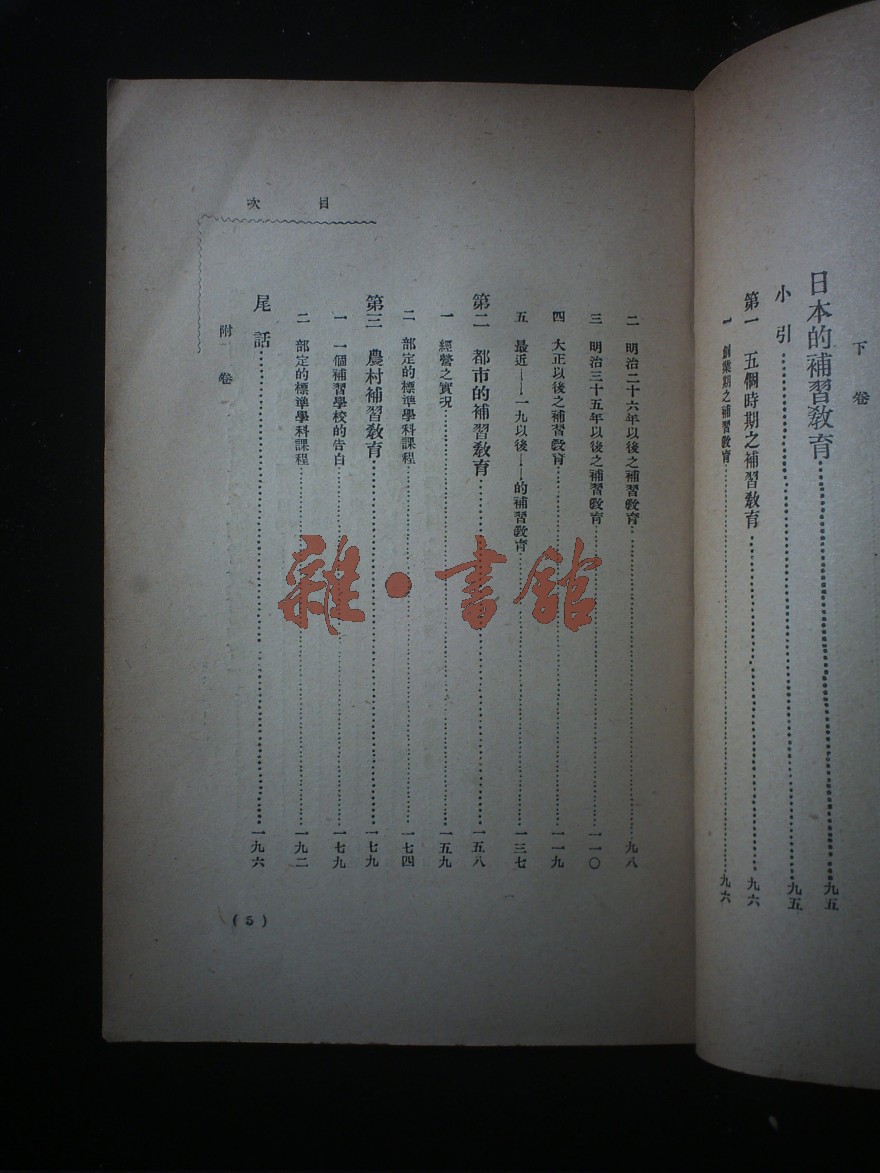 下卷
日本的補習教育……九五
小引……九五
第一 五個時期之補習教育……九六
一 創業期之補習教育……九六
目次
二 明治二十六年以後之補習教育……九八
三 明治三十五年以後之補習教育……一一〇
四 大正以後之補習教育……一一九
五 最近——一九以後——的補習教育……一三七
第二 都市的補習教育……一五八
一 經營之實況……一五九
二 部定的標準學科課程……一七四
第三 農村補習教育……一七九
一 一個補習學校的告白……一七九
二 部定的標準學科課程……一九二
尾話……一九六
附一卷
(5)
雜·書館